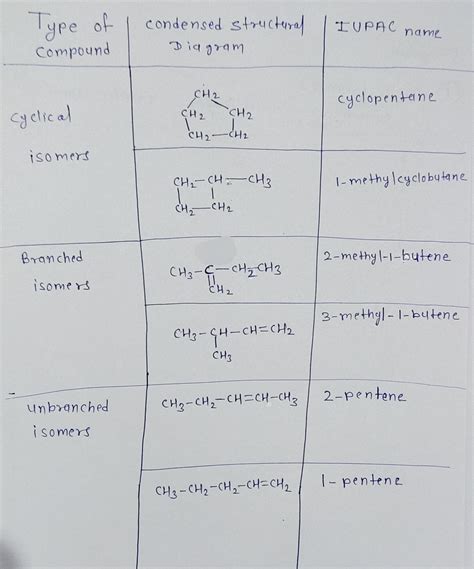 Type of
compound
condensed structural
Diagram
IUPAC name
cyclical
isomers
CH2
CH2 CH2
CH2-CH2
cyclopentane
CH2-CH-CH3
CH2-CH2
1-methylcyclobutane
Branched
isomers
CH3-C-CH2CH3
CH2
2-methyl-1-butene
CH3-CH-CH=CH2
CH3
3-methyl-1-butene
unbranched
isomers
CH3-CH2-CH=CH-CH3
2-pentene
CH3-CH2-CH2-CH=CH2
1-pentene